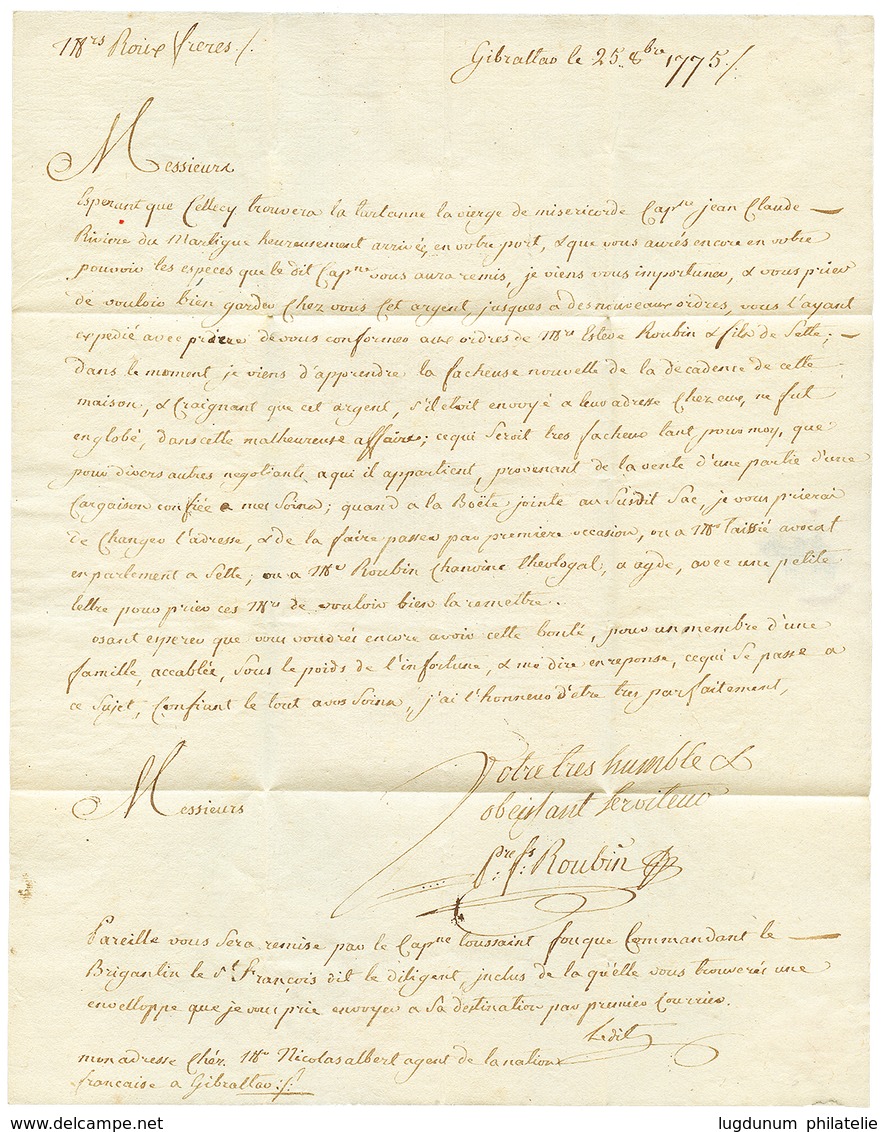 Mrs Roux freres ./.
Gibraltar le 25. 8bre 1775 ./.
Messieurs
Esperant que Cellecy trouvera la tartanne la vierge de misericorde Capne jean Claude —
Riviere du Martigue heureusement arrivée, en votre port, & que vous aurés encore en votre
pouvoir les espèces que le dit Capne vous aura remis, je viens vous importuner, & vous prier
de vouloir bien garder Chez vous Cet argent, jusques a des nouveaux ordres, vous l'ayant
expedié avec priere de vous conformer aux ordres de Mrs Esteve Roubin & fils de Sette; —
dans le moment, je viens d'apprendre la facheuse nouvelle de la décadence de cette
maison, & Craignant que cet argent, s'il étoit envoyé a leur adresse Chez eux, ne fut
englobé, dans cette malheureuse affaire; cequi Seroit tres facheux tant pour moy, que
pour divers autres negotiants a qui il appartient, provenant de la vente d'une partie d'une
Cargaison confiée a mes Soins; quand a la Boëte jointe au Susdit Sac, je vous prierai
de Changer l'adresse, & de la faire passer par premiere occasion, ou a Mr taissié avocat
en parlement a Sette; ou a Mr Roubin Chanoine theologal, a agde, avec une petite
lettre pour prier ces Mrs de vouloir bien la remettre.
osant esperer que vous voudrés encore avoir cette bonté, pour un membre d'une
famille, accablée, Sous le poids de l'infortune, & me dire en reponse, cequi Se passe a
ce Sujet, Confiant le tout a vos Soins, j'ai l'honneur d'être tres parfaitement,
Messieurs
Votre tres humble &
obeissant Serviteur
pre fs: Roubin
Pareille vous Sera remise par le Capne toussaint fouque Commandant le —
Brigantin le St François dit le diligent, inclus de la quélle vous trouverés une
envelloppe que je vous prie envoyer a Sa destination par premier Courrier.
Ledit
mon adresse Chéz Mr Nicolas albert agent de la nation
francaise a Gibraltar ./.
lugdunum philatelie